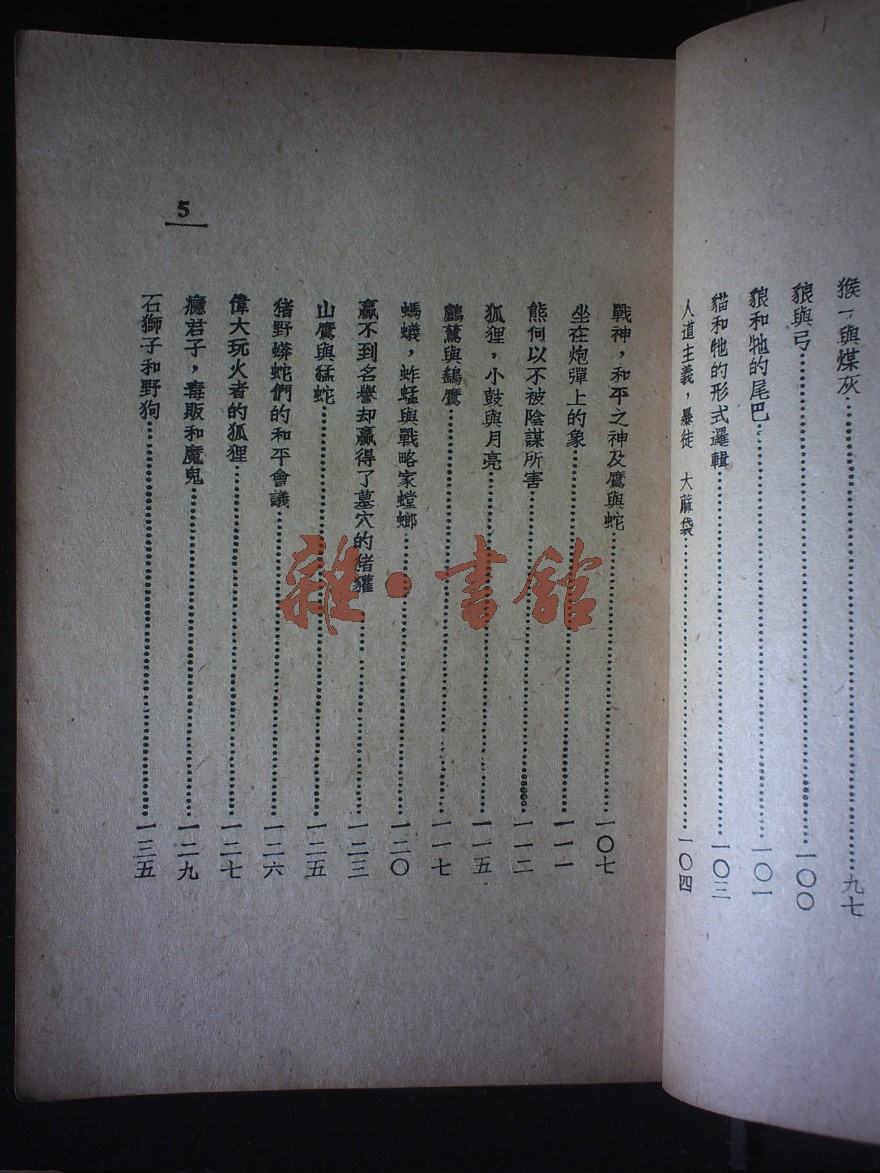 猴子與煤灰……九七
狼與弓……一〇〇
狼和牠的尾巴……一〇一
貓和牠的形式邏輯……一〇三
人道主義，暴徒 大蔴袋……一〇四
戰神，和平之神及鷹與蛇……一〇七
坐在炮彈上的象……一一一
熊何以不被陰謀所害……一一二
狐狸，小鼓與月亮……一一五
鸕鶿與鷂鷹……一一七
螞蟻，蚱蜢與戰略家螳螂……一二〇
贏不到名譽却贏得了墓穴的猪獾……一二三
山鷹與猛蛇……一二五
猪野蟒蛇們的和平會議……一二六
偉大玩火者的狐狸……一二七
癮君子，毒販和魔鬼……一二九
石獅子和野狗……一三五
5
雜·書館